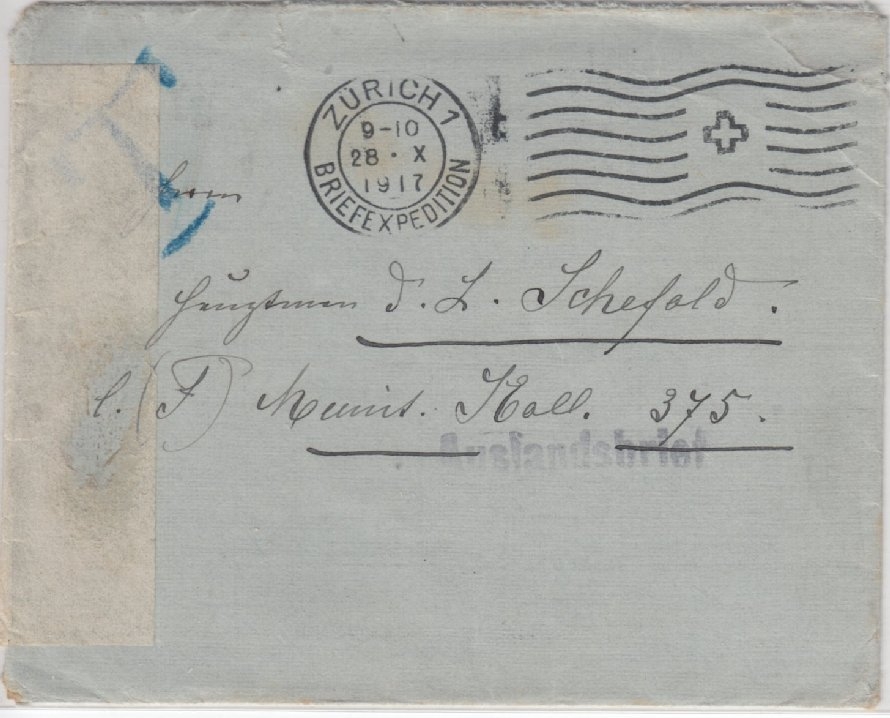 ZÜRICH 1
9-10
28 · X
1917
BRIEFEXPEDITION
Herrn
Hauptmann d. L. Schefold.
l. (F) Munit. Koll. 375.
Auslandsbrief